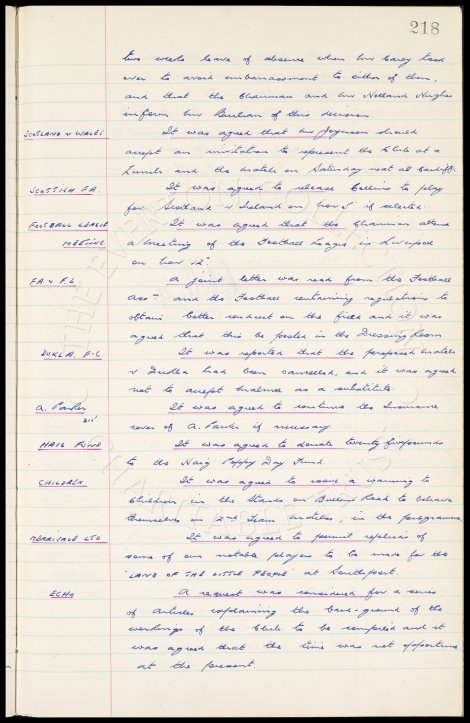 218
two weeks leave of absence when Mr Carey took
over to avoid embarrassment to either of them,
and that the Chairman and Mr Holland Hughes
inform Mr Buchan of this decision.
SCOTLAND v WALES It was agreed that Mr Joynson should
accept an invitation to represent the Club at a
Lunch and the match on Saturday next at Cardiff.
SCOTTISH F.A. It was agreed to release Collins to play
for Scotland v Ireland on Nov 5 if selected.
FOOTBALL LEAGUE It was agreed that the Chairman attend
MEETING a Meeting of the Football League in Liverpool
on Nov 12th.
FA v F.L. A joint letter was read from the Football
Assn and the Football containing regulations to
obtain better conduct on the field and it was
agreed that this be posted in the Dressing Room
DUKLA. F.C. It was reported that the proposed match
v Dukla had been cancelled, and it was agreed
not to accept Malmoe as a substitute.
A. Parker It was agreed to continue the Insurance
210' cover of A. Parker if necessary
HAIG FUND It was agreed to donate twenty five pounds
to the Haig Poppy Day Fund.
CHILDREN It was agreed to issue a warning to
Children, in the Stands on Bullens Road to behave
themselves on 2nd Team matches, in the programme
MERRIVALE LTD It was agreed to permit replicas of
some of our notable players to be made for the
"LAND OF THE LITTLE PEOPLE" at Southport.
ECHO A request was considered for a series
of Articles explaining the back-ground of the
workings of the Club to be compiled and it
was agreed that the time was not opportune
at the present.